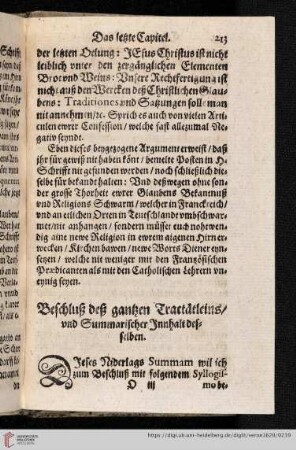 Das letzte Capitel. 213
der letzten Oelung: JEsus Christus ist nicht
leiblich vnter den zergänglichen Elementen
Brot vnd Weins: Vnsere Rechtfertigung ist
nicht auß den Wercken deß Christlichen Glau-
bens: Traditiones vnd Satzungen soll man
nit annehmen/ꝛc. Sprich es auch von vielen Arti-
culen ewrer Confession/ welche fast allezumal Ne-
gativ seynd.
Eben dieses beygezogene Argument erweist/ daß
ihr für gewiß nit haben könt/ bemelte Posten in H.
Schrifft nit gefunden werden/ noch schließlich die-
selbe für bekandt halten: Vnd deßwegen ohne son-
der grosse Thorheit ewrer Glaubens Bekanntnuß
vnd Religions Schwarm/ welcher in Franckreich/
vnd an etlichen Orten in Teutschlande vmbschwar-
met/ nit anhangen/ sondern müsset euch nohtwen-
dig eine newe Religion in ewrem aigenen Hirn er-
wecken/ Kirchen bawen/ newe Worts Diener eyn-
setzen/ welche nit weniger mit den Frantzösischen
Prædicanten als mit den Catholischen Lehrern vn-
eynig seyen.
Beschluß deß gantzen Tractätleins/
vnd Summarischer Innhalt des-
selben.
DIeses Niderlags Summam wil ich
zum Beschluß mit folgendem Syllogis-
O iij mo be-